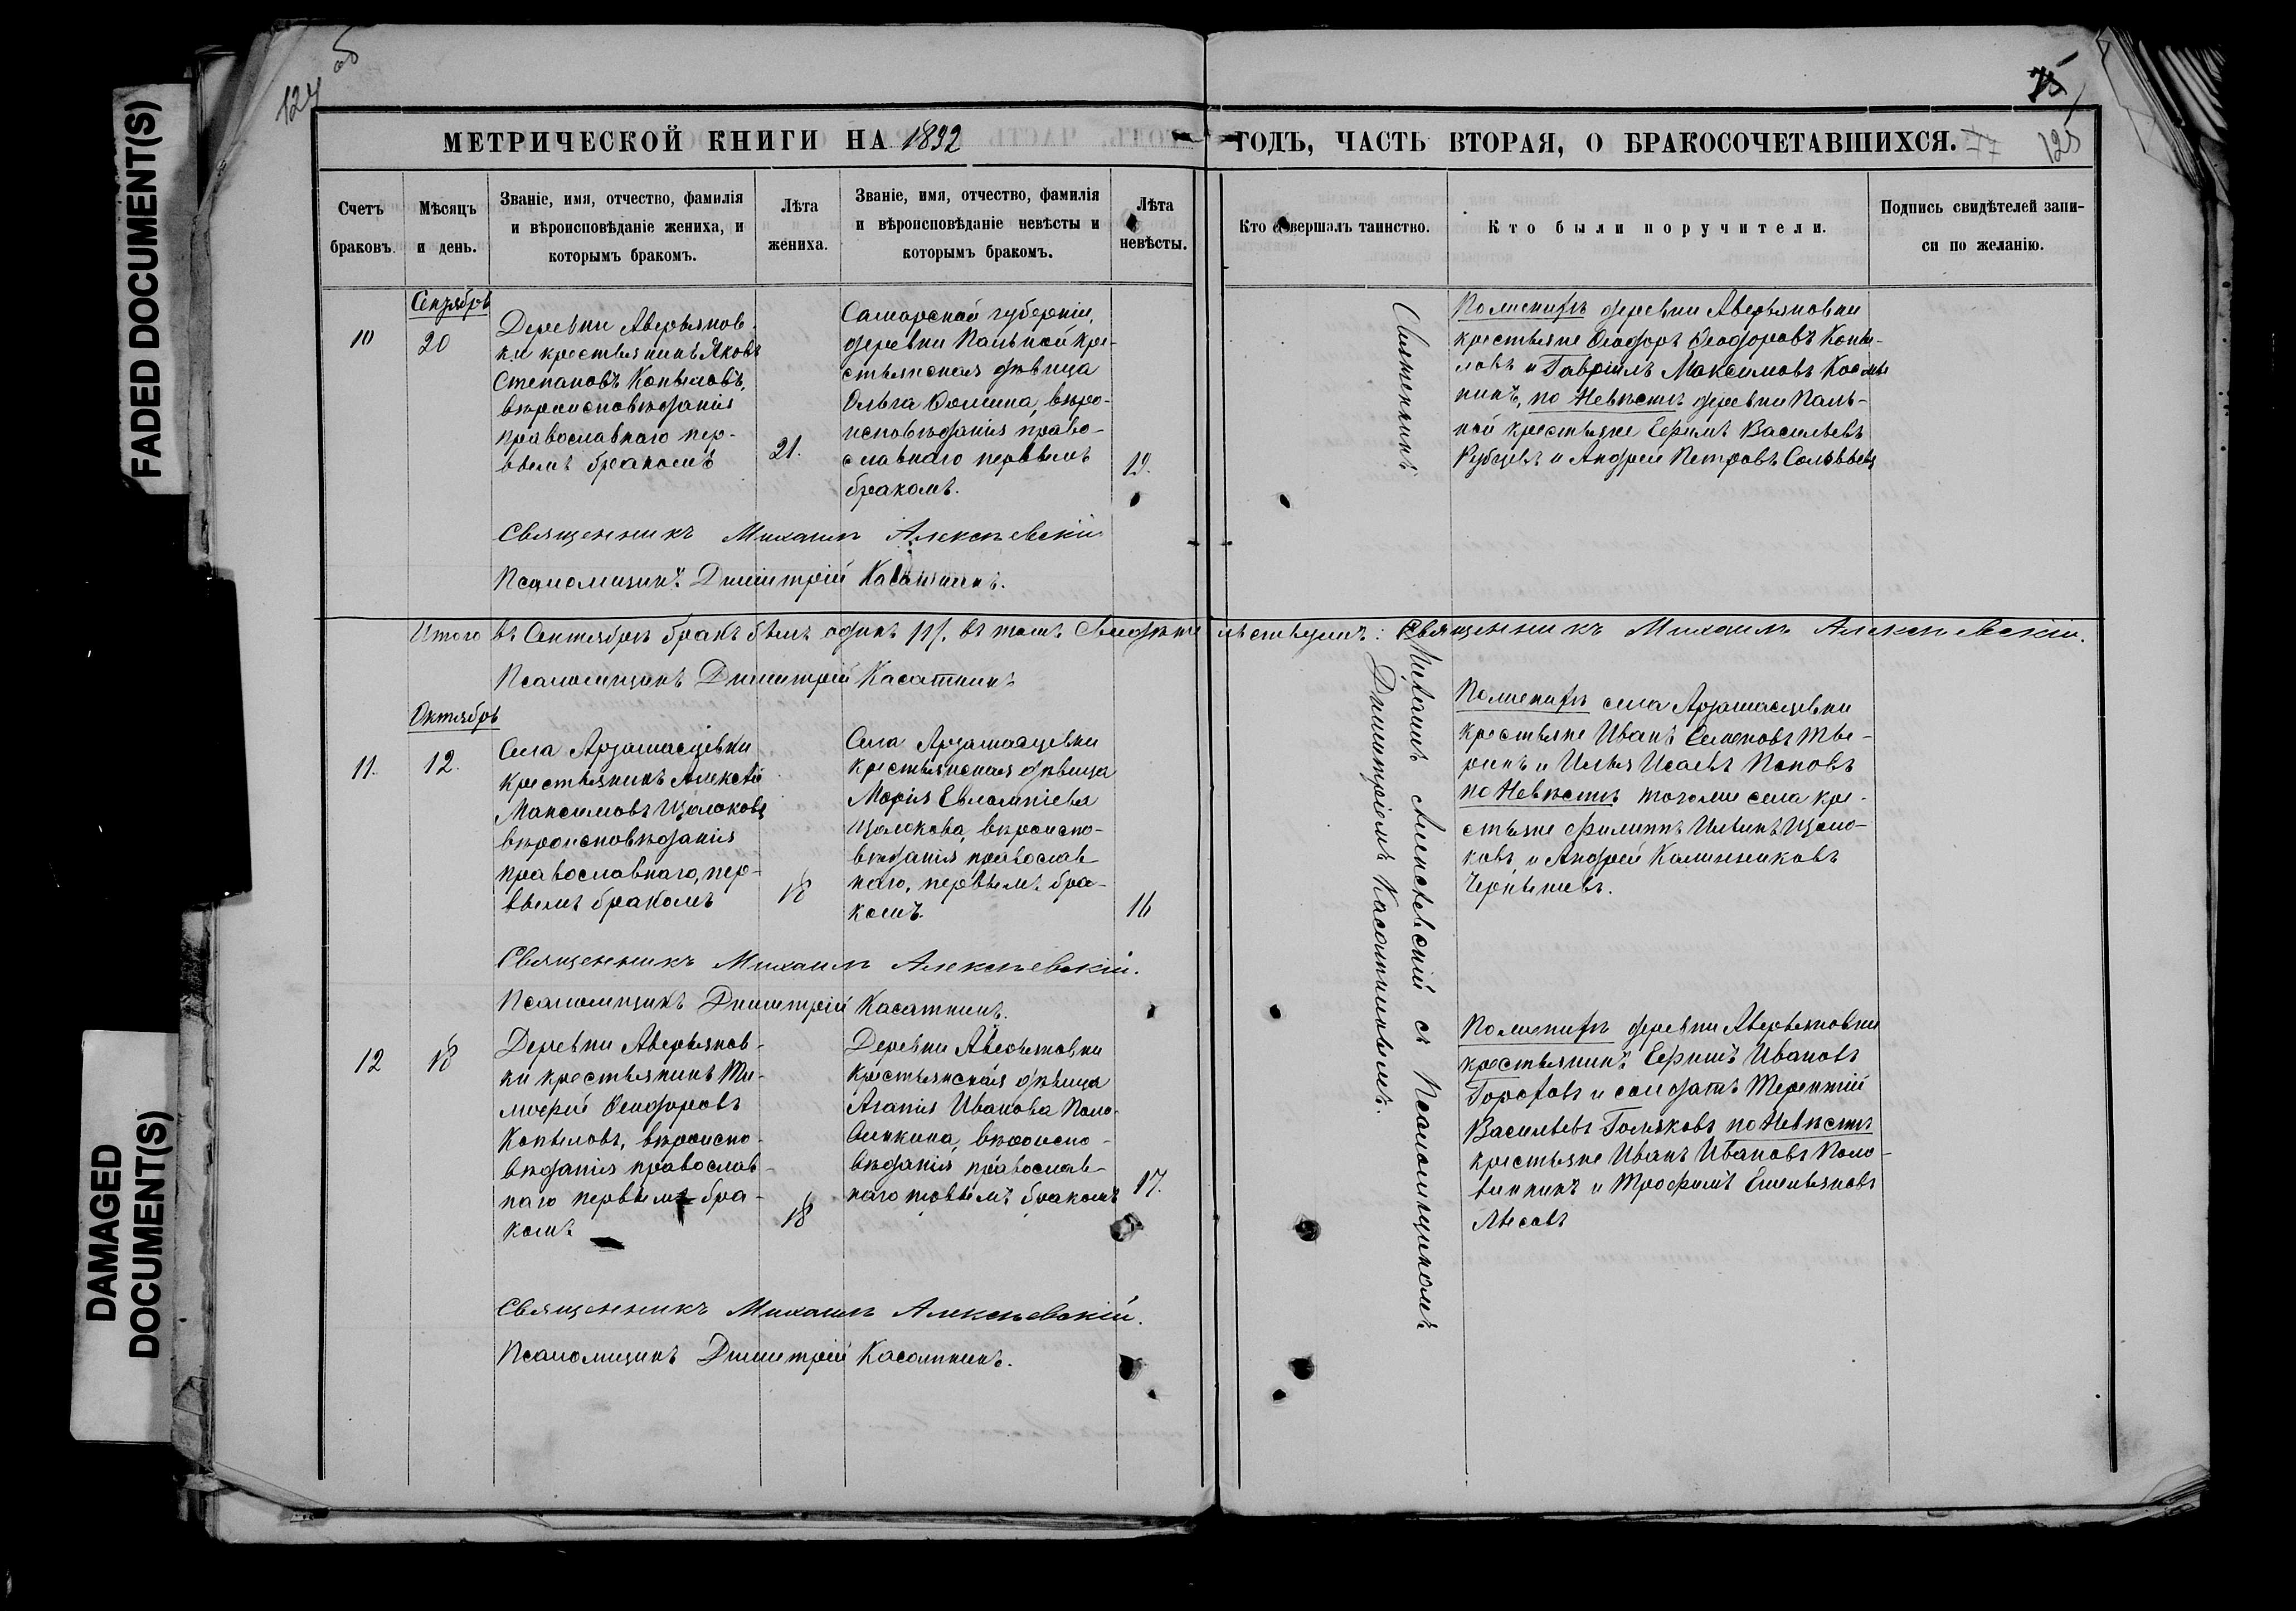 FADED DOCUMENT(S)
DAMAGED
DOCUMENT(S)
124 об
75
125
МЕТРИЧЕСКОЙ КНИГИ НА 1892 ГОДЪ, ЧАСТЬ ВТОРАЯ, О БРАКОСОЧЕТАВШИХСЯ.
Счетъ
браковъ.
Мѣсяцъ
и день.
Званіе, имя, отчество, фамилія
и вѣроисповѣданіе жениха, и
которымъ бракомъ.
Лѣта
жениха.
Званіе, имя, отчество, фамилія
и вѣроисповѣданіе невѣсты и
которымъ бракомъ.
Лѣта
невѣсты.
Кто совершалъ таинство.
Кто были поручители.
Подпись свидѣтелей запи-
си по желанію.
10
Сентябрь
20
Деревни Аверьянов-
ки крестьянинъ Яковъ
Степановъ Копыловъ,
вѣроисповѣданія
православнаго пер-
вымъ бракомъ
21.
Самарской губерніи,
деревни Пальной кре-
стьянская дѣвица
Ольга Фомина, вѣро-
исповѣданія право-
славнаго первымъ
бракомъ.
19.
По женихѣ деревни Аверьяновки
крестьяне Ѳеодоръ Ѳеодоровъ Копы-
ловъ и Гавріилъ Максимовъ
по Невѣстѣ деревни Паль-
ной крестьяне Ефимъ Васильевъ
Рубцовъ и Андрей Петровъ Соловьевъ
Священникъ Михаилъ Алексѣевскій
Псаломщикъ Димитрій Касаткинъ.
Итого въ Сентябрѣ бракъ былъ одинъ /1/. въ томъ Свидѣтельствуемъ: Священникъ Михаилъ Алексѣевскій.
Псаломщикъ Димитрій Касаткинъ
Священникъ
Михаилъ Алексѣевскій съ Псаломщикомъ
Димитріемъ Касаткинымъ.
Октябрь
11.
12.
Села Арзамасцевки
крестьянинъ Алексѣй
Максимовъ Щолоковъ
вѣроисповѣданія
православнаго, пер-
вымъ бракомъ
18
Села Арзамасцевки
крестьянская дѣвица
Марія Евлампіева
Щолокова, вѣроиспо-
вѣданія православ-
наго, первымъ бра-
комъ.
16
По женихѣ села Арзамасцевки
крестьяне Иванъ Семеновъ Тю-
ринъ и Илья Исаевъ Поповъ
по Невѣстѣ тогоже села кре-
стьяне Филиппъ Ильинъ Щоло-
ковъ, и Андрей Калинниковъ
Чернышевъ.
Священникъ Михаилъ Алексѣевскій.
Псаломщикъ Димитрій Касаткинъ.
12
18
Деревни Аверьянов-
ки крестьянинъ Ти-
моѳей Ѳеодоровъ
Копыловъ, вѣроиспо-
вѣданія православ-
наго первымъ бра-
комъ
18
Деревни Аверьяновки
крестьянская дѣвица
Агапія Иванова Поло-
винкина, вѣроиспо-
вѣданія православ-
наго первымъ бракомъ
17.
По женихѣ деревни Аверьяновки
крестьянинъ Ефимъ Ивановъ
и солдатъ Терентій
Васильевъ Голяковъ по Невѣстѣ
крестьяне Иванъ Ивановъ Поло-
винкинъ и Трофимъ Емельяновъ
Священникъ Михаилъ Алексѣевскій.
Псаломщикъ Димитрій Касаткинъ.